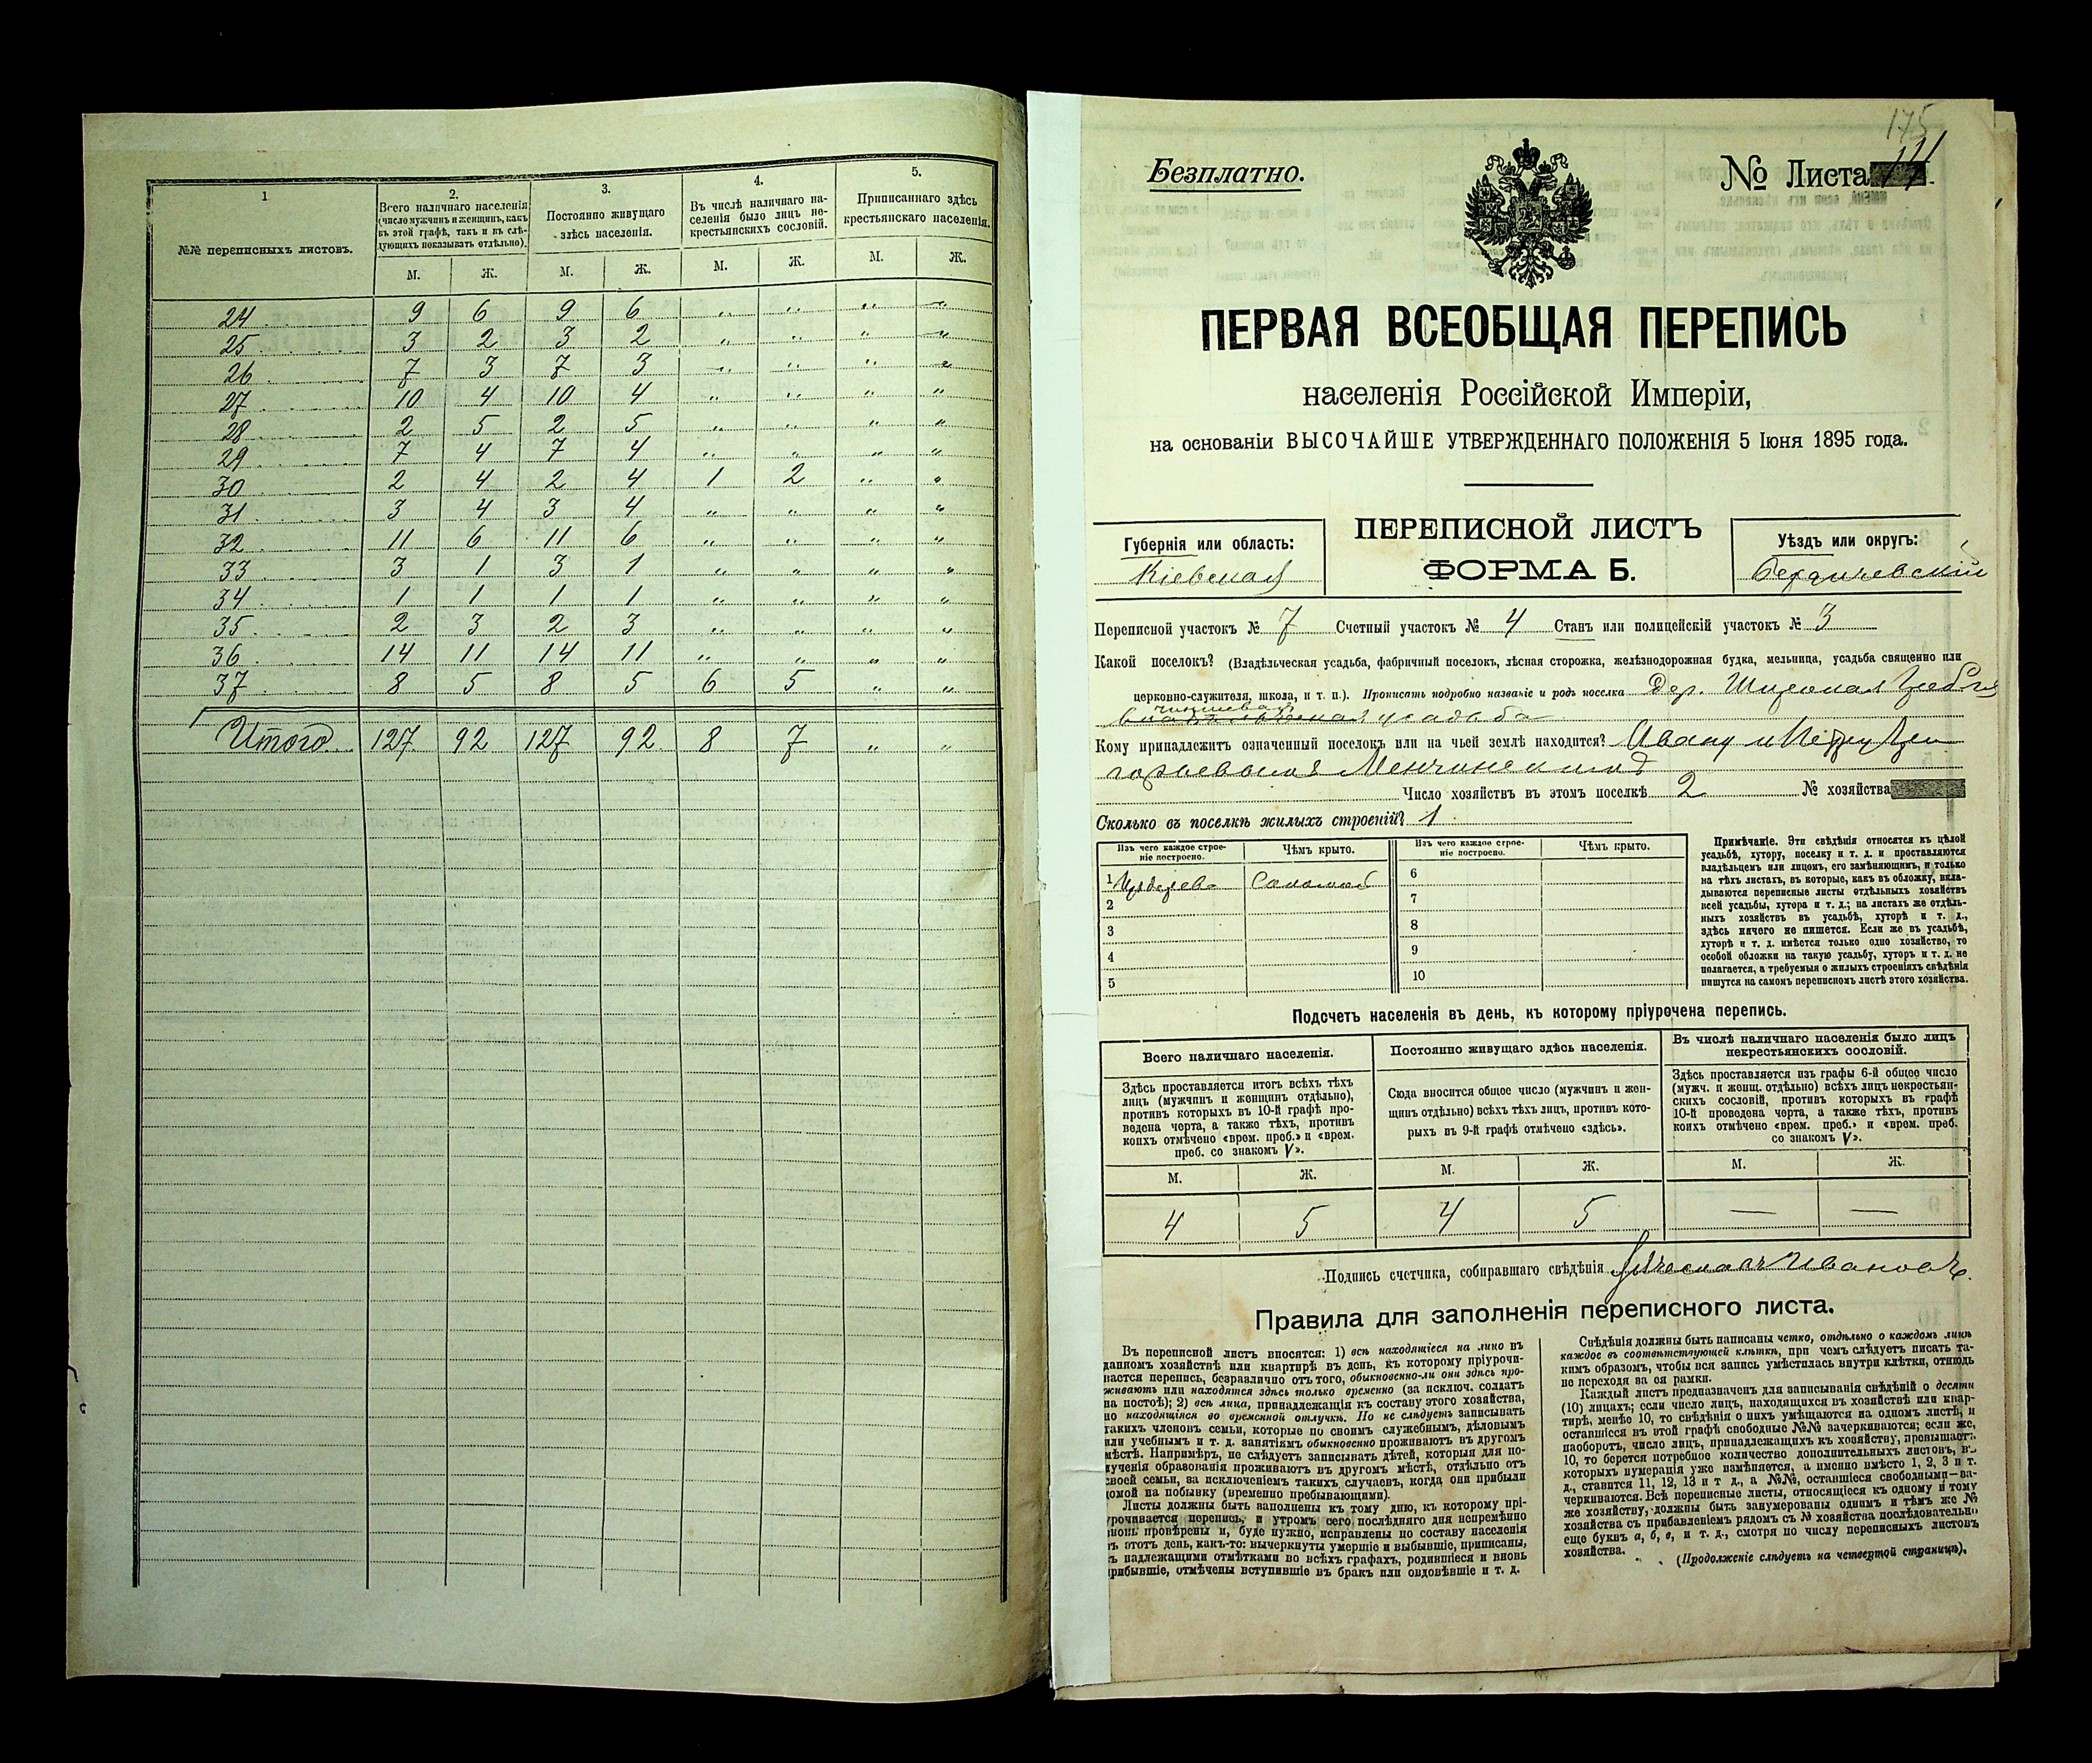 1
2.
3.
4.
5.
№№ переписныхъ листовъ.
Всего наличнаго населенія
(число мужчинъ и женщинъ, какъ
въ этой графѣ, такъ и въ слѣ-
дующихъ показывать отдѣльно).
Постоянно живущаго
здѣсь населенія.
Въ числѣ наличнаго на-
селенія было лицъ не-
крестьянскихъ сословій.
Приписаннаго здѣсь
крестьянскаго населенія.
М. Ж. М. Ж. М. Ж. М. Ж.
24 9 6 9 6 " " " "
25 3 2 3 2 " " " "
26 7 3 7 3 " " " "
27 10 4 10 4 " " " "
28 2 5 2 5 " " " "
29 7 4 7 4 " " " "
30 2 4 2 4 1 2 " "
31 3 4 3 4 " " " "
32 11 6 11 6 " " " "
33 3 1 3 1 " " " "
34 1 1 1 1 " " " "
35 2 3 2 3 " " " "
36 14 11 14 11 " " " "
37 8 5 8 5 6 5 " "
Итого 127 92 127 92 8 7 " "
175
Безплатно.
№ Листа
ПЕРВАЯ ВСЕОБЩАЯ ПЕРЕПИСЬ
населенія Россійской Имперіи,
на основаніи ВЫСОЧАЙШЕ УТВЕРЖДЕННАГО ПОЛОЖЕНІЯ 5 Іюня 1895 года.
ПЕРЕПИСНОЙ ЛИСТЪ
ФОРМА Б.
Губернія или область:
Кіевская
Уѣздъ или округъ:
Бердичевскій
Переписной участокъ № 7 Счетный участокъ № 4 Станъ или полицейскій участокъ № 3
Какой поселокъ? (Владѣльческая усадьба, фабричный поселокъ, лѣсная сторожка, желѣзнодорожная будка, мельница, усадьба священно или
церковно-служителя, школа, и т. п.). Прописать подробно названіе и родъ поселка Дер. Широкая Гребля
чиншевая
усадьба
Кому принадлежитъ означенный поселокъ или на чьей землѣ находится? Ивану и Петру
Число хозяйствъ въ этомъ поселкѣ 2 № хозяйства
Сколько въ поселкѣ жилыхъ строеній? 1
Изъ чего каждое строе-
ніе построено.
Чѣмъ крыто.
Изъ чего каждое строе-
ніе построено.
Чѣмъ крыто.
1 Изъ дерева Соломой 6
2 7
3 8
4 9
5 10
Примѣчаніе. Эти свѣдѣнія относятся къ цѣлой
усадьбѣ, хутору, поселку и т. д. и проставляются
владѣльцемъ или лицомъ, его замѣняющимъ, и только
на тѣхъ листахъ, въ которые, какъ въ обложку, вкла-
дываются переписные листы отдѣльныхъ хозяйствъ
всей усадьбы, хутора и т. д.; на листахъ же отдѣль-
ныхъ хозяйствъ въ усадьбѣ, хуторѣ и т. д.,
здѣсь ничего не пишется. Если же въ усадьбѣ,
хуторѣ и т. д. имѣется только одно хозяйство, то
особой обложки на такую усадьбу, хуторъ и т. д. не
полагается, а требуемыя о жилыхъ строеніяхъ свѣдѣнія
пишутся на самомъ переписномъ листѣ этого хозяйства.
Подсчетъ населенія въ день, къ которому пріурочена перепись.
Всего наличнаго населенія.
Постоянно живущаго здѣсь населенія.
Въ числѣ наличнаго населенія было лицъ
некрестьянскихъ сословій.
Здѣсь проставляется итогъ всѣхъ тѣхъ
лицъ (мужчинъ и женщинъ отдѣльно),
противъ которыхъ въ 10-й графѣ про-
ведена черта, а также тѣхъ, противъ
коихъ отмѣчено «врем. преб.» и «врем.
преб. со знакомъ V».
Сюда вносится общее число (мужчинъ и жен-
щинъ отдѣльно) всѣхъ тѣхъ лицъ, противъ кото-
рыхъ въ 9-й графѣ отмѣчено «здѣсь».
Здѣсь проставляется изъ графы 6-й общее число
(мужч. и женщ. отдѣльно) всѣхъ лицъ некрестьян-
скихъ сословій, противъ которыхъ въ графѣ
10-й проведена черта, а также тѣхъ, противъ
коихъ отмѣчено «врем. преб.» и «врем. преб.
со знакомъ V».
М. Ж. М. Ж. М. Ж.
4 5 4 5 — —
Подпись счетчика, собиравшаго свѣдѣнія Ивановъ.
Правила для заполненія переписного листа.
Въ переписной листъ вносятся: 1) всѣ находящіеся на лицо въ
данномъ хозяйствѣ или квартирѣ въ день, къ которому пріурочи-
вается перепись, безразлично отъ того, обыкновенно-ли они здѣсь про-
живаютъ или находятся здѣсь только временно (за исключ. солдатъ
на постоѣ); 2) всѣ лица, принадлежащія къ составу этого хозяйства,
но находящіяся во временной отлучкѣ. Но не слѣдуетъ записывать
такихъ членовъ семьи, которые по своимъ служебнымъ, дѣловымъ
или учебнымъ и т. д. занятіямъ обыкновенно проживаютъ въ другомъ
мѣстѣ. Напримѣръ, не слѣдуетъ записывать дѣтей, которыя для по-
лученія образованія проживаютъ въ другомъ мѣстѣ, отдѣльно отъ
своей семьи, за исключеніемъ такихъ случаевъ, когда они прибыли
домой на побывку (временно пребывающими).
Листы должны быть заполнены къ тому дню, къ которому прі-
урочивается перепись, и утромъ сего послѣдняго дня непремѣнно
вновь провѣрены и, буде нужно, исправлены по составу населенія
въ этотъ день, какъ-то: вычеркнуты умершіе и выбывшіе, приписаны,
съ надлежащими отмѣтками во всѣхъ графахъ, родившіеся и вновь
прибывшіе, отмѣчены вступившіе въ бракъ или овдовѣвшіе и т. д.
Свѣдѣнія должны быть написаны четко, отдѣльно о каждомъ лицѣ
каждое въ соотвѣтствующей клѣткѣ, при чемъ слѣдуетъ писать та-
кимъ образомъ, чтобы вся запись умѣстилась внутри клѣтки, отнюдь
не переходя за ея рамки.
Каждый листъ предназначенъ для записыванія свѣдѣній о десяти
(10) лицахъ; если число лицъ, находящихся въ хозяйствѣ или квар-
тирѣ, менѣе 10, то свѣдѣнія о нихъ умѣщаются на одномъ листѣ, и
оставшіеся въ этой графѣ свободные №№ зачеркиваются; если же,
наоборотъ, число лицъ, принадлежащихъ къ хозяйству, превышаетъ
10, то берется потребное количество дополнительныхъ листовъ, въ
которыхъ нумерація уже измѣняется, а именно вмѣсто 1, 2, 3 и т.
д., ставится 11, 12, 13 и т д., а №№, оставшіеся свободными—за-
черкиваются. Всѣ переписные листы, относящіеся къ одному и тому
же хозяйству, должны быть занумерованы однимъ и тѣмъ же №
хозяйства съ прибавленіемъ рядомъ съ № хозяйства послѣдовательно
еще буквъ а, б, в, и т. д., смотря по числу переписныхъ листовъ
хозяйства.
(Продолженіе слѣдуетъ на четвертой страницѣ).